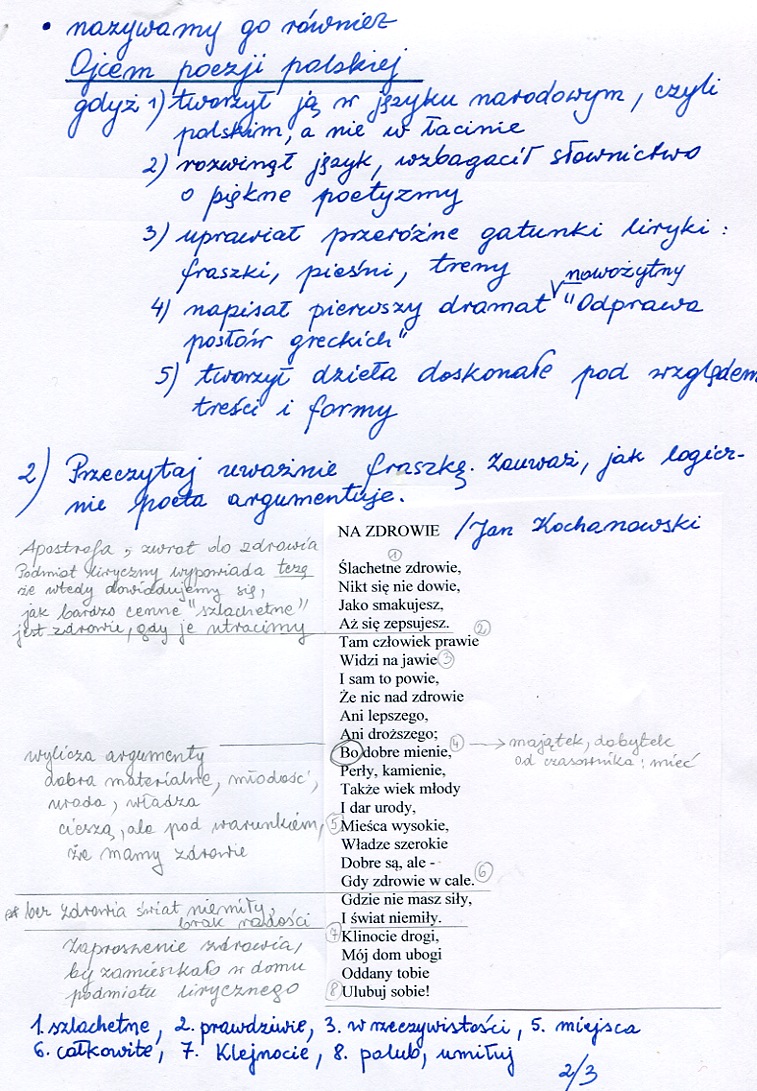 • nazywamy go również
Ojcem poezji polskiej
gdyż 1) tworzył ją w języku narodowym, czyli
polskim, a nie w łacinie
2) rozwinął język, wzbagacił słownictwo
o piękne poetyzmy
3) uprawiał przeróżne gatunki liryki:
fraszki, pieśni, treny
nowożytny
4) napisał pierwszy dramat "Odprawa
posłów greckich"
5) tworzył dzieła doskonałe pod względem
treści i formy
2) Przeczytaj uważnie fraszkę. Zauważ, jak logicz-
nie poeta argumentuje.
NA ZDROWIE / Jan Kochanowski
Apostrofa, zwrot do zdrowia
Podmiot liryczny wypowiada tezę
że wtedy dowiadujemy się,
jak bardzo cenne "szlachetne"
jest zdrowie, gdy je utracimy
①
Ślachetne zdrowie,
Nikt się nie dowie,
Jako smakujesz,
Aż się zepsujesz.
Tam człowiek prawie ②
Widzi na jawie ③
I sam to powie,
Że nic nad zdrowie
Ani lepszego,
Ani droższego;
Bo dobre mienie, ④ → majątek, dobytek
od czasownika: mieć
Perły, kamienie,
Także wiek młody
I dar urody,
⑤ Mieśca wysokie,
Władze szerokie
Dobre są, ale -
Gdy zdrowie w cale. ⑥
Gdzie nie masz siły,
I świat niemiły.
⑦ Klinocie drogi,
Mój dom ubogi
Oddany tobie
⑧ Ulubuj sobie!
wylicza argumenty
dobra materialne, młodość,
uroda, władza
cieszą, ale pod warunkiem,
że mamy zdrowie
bez zdrowia świat niemiły,
brak radości
Zaproszenie zdrowia,
by zamieszkało w domu
podmiotu lirycznego
1. szlachetne, 2. prawdziwie, 3. w rzeczywistości, 5. miejsca
6. całkowite, 7. Klejnocie, 8. polub, umiłuj
2/3